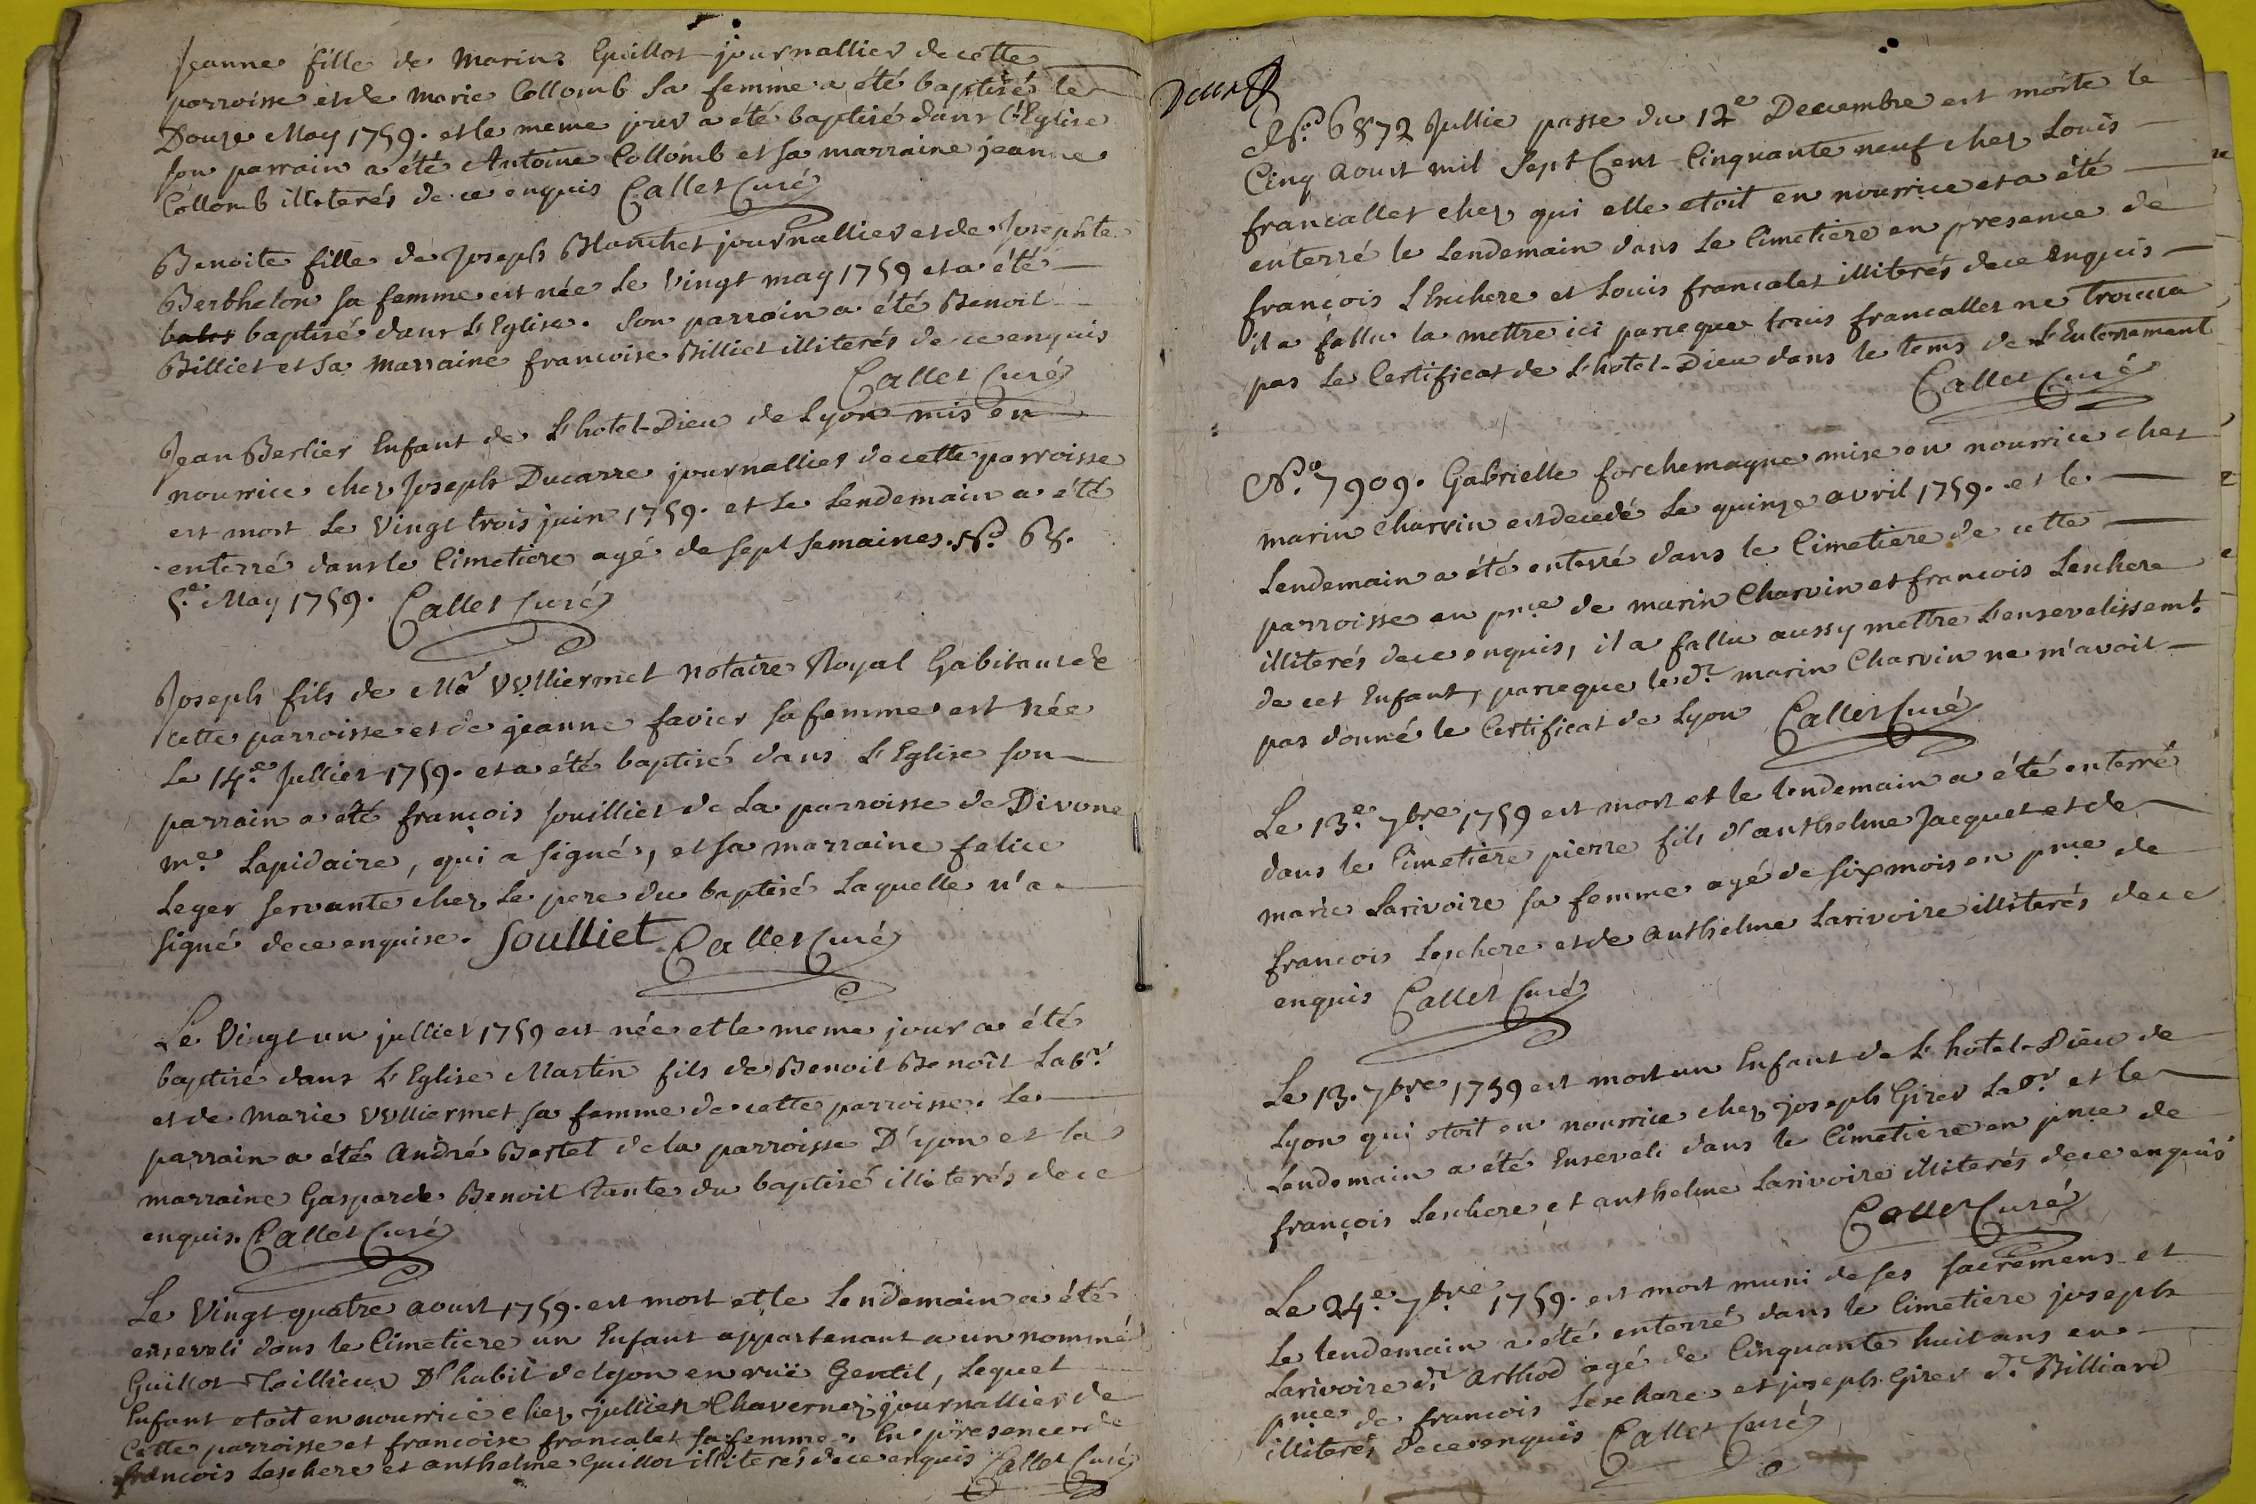 Jeanne fille de Marin Guillot journallier de cette
parroisse et de Marie Collomb sa femme a été baptisé le
Douze May 1759. et le meme jour a été baptisé dans l'Eglise
son parrain a été Antoine Collomb et sa marraine jeanne
Collomb illiterés de ce enquis Callet Curé
Benoite fille de Joseph Blanchet journallier et de Josephte
Berthelon sa femme est née le vingt may 1759 et a été
baptisé dans L'Eglise. Son parrain a été Benoit
Billiet et sa marraine francoise Billiet illiterés de ce enquis
Callet Curé
Jean Berlier Enfant de L'hotel-Dieu de Lyon mis en
nourrice chez Joseph Ducarre journallier de cette parroisse
est mort le vingt trois juin 1759. et le lendemain a été
enterré dans le Cimetiere agé de sept semaines. N.o 68.
5.e May 1759. Callet Curé
Joseph fils de M.e Vulliermet Notaire Royal habitant de
cette parroisse et de jeanne favier sa femme est née
Le 14.e Jullier 1759. et a été baptisé dans L'Eglise son
parrain a été françois Soulliet de La parroisse de Divone
m.e Lapidaire, qui a signé, et sa marraine felice
Leger servante chez le pere du baptisé Laquelle n'a
signé de ce enquise. Soulliet Callet Curé
Le Vingt un jullier 1759 est née et le meme jour a été
baptisé dans L'Eglise Martin fils de Benoit Benoît Lab.r
et de Marie Vulliermet sa femme de cette parroisse. Le
parrain a été André Bertet de la parroisse D'yon et la
marraine Gasparde Benoit tante du baptisé illiterés de ce
enquis. Callet Curé
Le Vingt quatre aoust 1759. est mort et le lendemain a été
enseveli dans le Cimetiere un Enfant appartenant a un nommé
Guillot Tailleur D'habit de Lyon en ruë Gentil, Lequel
Enfant etoit en nourrice chez jullien Chavernoz journallier de
Cette parroisse et francoise francalet sa femme. En presence de
francois Leschere et anthelme Guillot illiterés de ce enquis Callet Curé
N.o 6872 Jullie passe du 12.e Decembre est morte le
Cinq Aoust mil sept Cent Cinquante neuf chez Louis
francallet chez qui elle etoit en nourrice et a été
enterré le Lendemain dans le Cimetiere en presence de
françois L'Eschere et Louis francalet illiterés de ce Enquis
il a fallu la mettre ici parce que Louis francallet ne trouva
pas le Certificat de L'hotel-Dieu dans le tems de L'Enterrement
Callet Curé
N.o 7909. Gabrielle forchemagne mise en nourrice chez
marin Charvin est decedé le quinze avril 1759. et le
Lendemain a été enterré dans le Cimetiere de cette
parroisse en pnce de marin Charvin et francois Leschere
illiterés de ce enquis, il a fallu aussy mettre L'ensevelissemt.
de cet Enfant, parce que le d.t marin Charvin ne m'avoit
pas donné le Certificat de Lyon Callet Curé
Le 13.e 7bre 1759 est mort et le lendemain a été enterré
dans le Cimetiere pierre fils d'anthelme Jacquet et de
marie Larivoire sa femme agé de six mois en pnce de
francois Leschere et de anthelme Larivoire illiterés de ce
enquis Callet Curé
Le 13. 7bre 1759 est mort un Enfant de L'hotel-Dieu de
Lyon qui etoit en nourrice chez joseph Girer Lab.r et le
Lendemain a été Enseveli dans le Cimetiere en pnce de
françois Leschere et anthelme Larivoire illiterés de ce enquis
Callet Curé
Le 24.e 7bre 1759. est mort muni de ses sacremens et
Le lendemain a été enterré dans le Cimetiere joseph
Larivoire d.t Arthod agé de Cinquante huit ans en
pnce de francois Leschere et joseph Girer d.t Billiard
illiterés de ce enquis Callet Curé